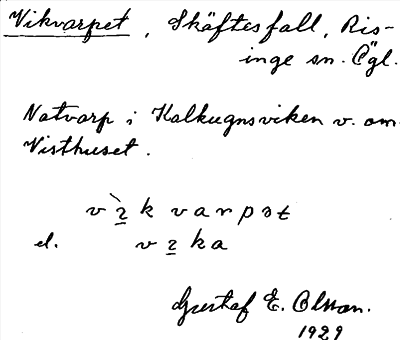 Vikvarpet, Skäftesfall, Ris-
inge sn. Ögl.
Notvarp i Kalkugnsviken v. om
Visthuset.
v k varpət
el. v ka
Gustaf E. Olsson.
1929